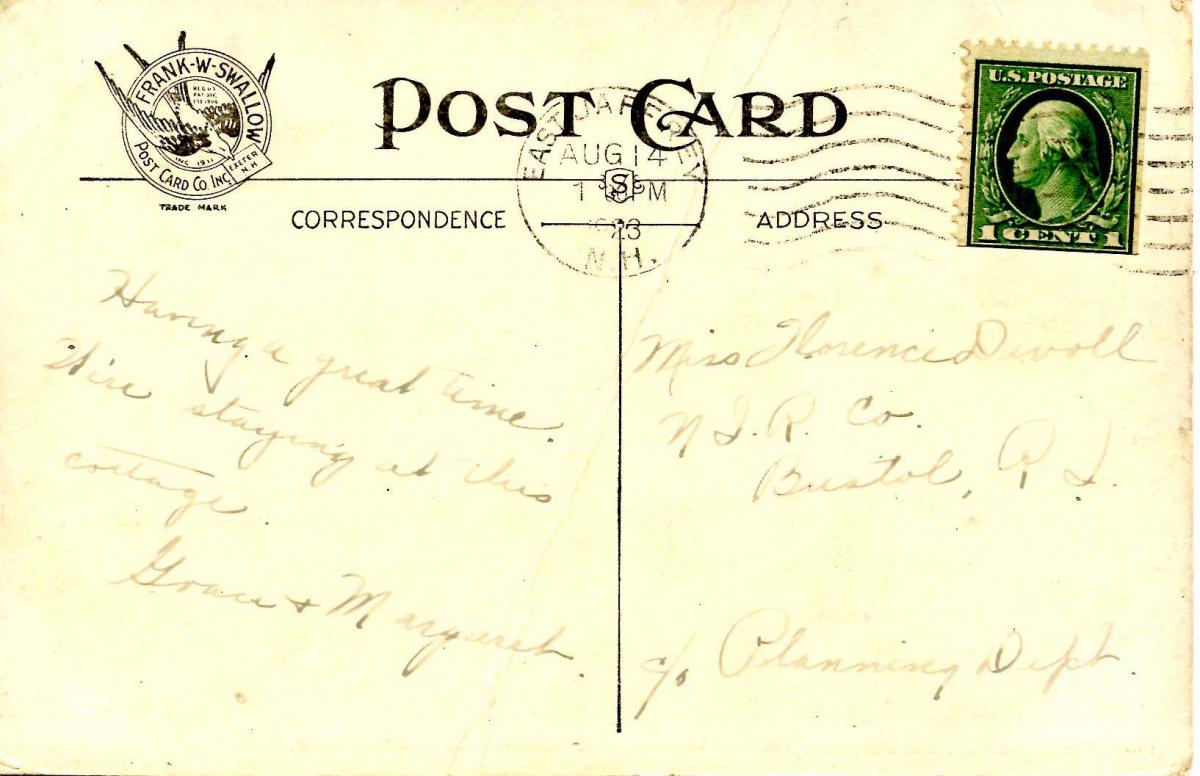 FRANK-W-SWALLOW
POST CARD CO. INC.
EXETER
N.H.
INC. 1911
TRADE MARK
POST CARD
EAST JAFFREY
AUG 14
1 PM
1923
N.H.
S
U.S. POSTAGE
1 CENT 1
CORRESPONDENCE
ADDRESS
Having a great time.
We're staying at this
cottage
Grace + Margaret.
Miss Florence Duvoll
N.I.R. Co.
Bristol, R I.
c/o Planning Dept.